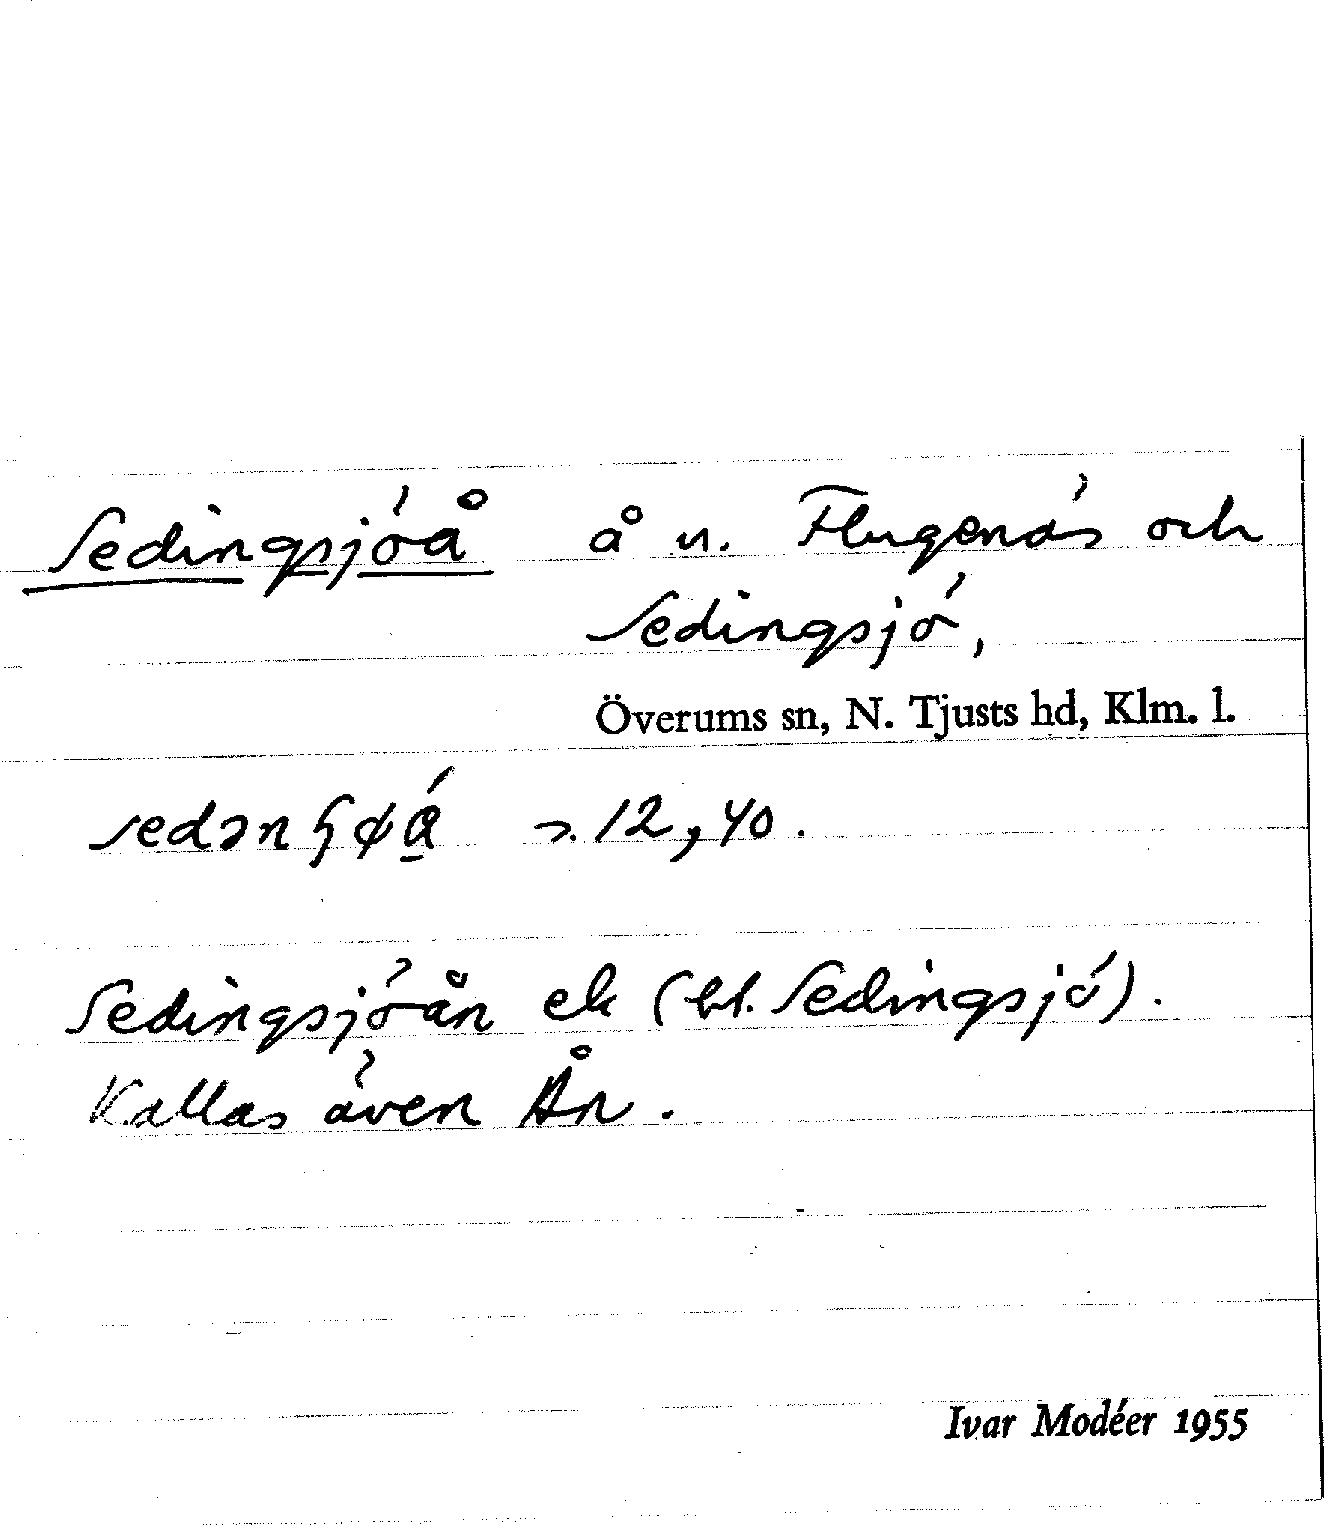 Sedingsjöå å u. Flugenäs och
Sedingsjö,
Överums sn, N. Tjusts hd, Klm. l.
12, 40.
Sedingsjöån ek (bl. Sedingsjö).
Kallas även Ån.
Ivar Modéer 1955